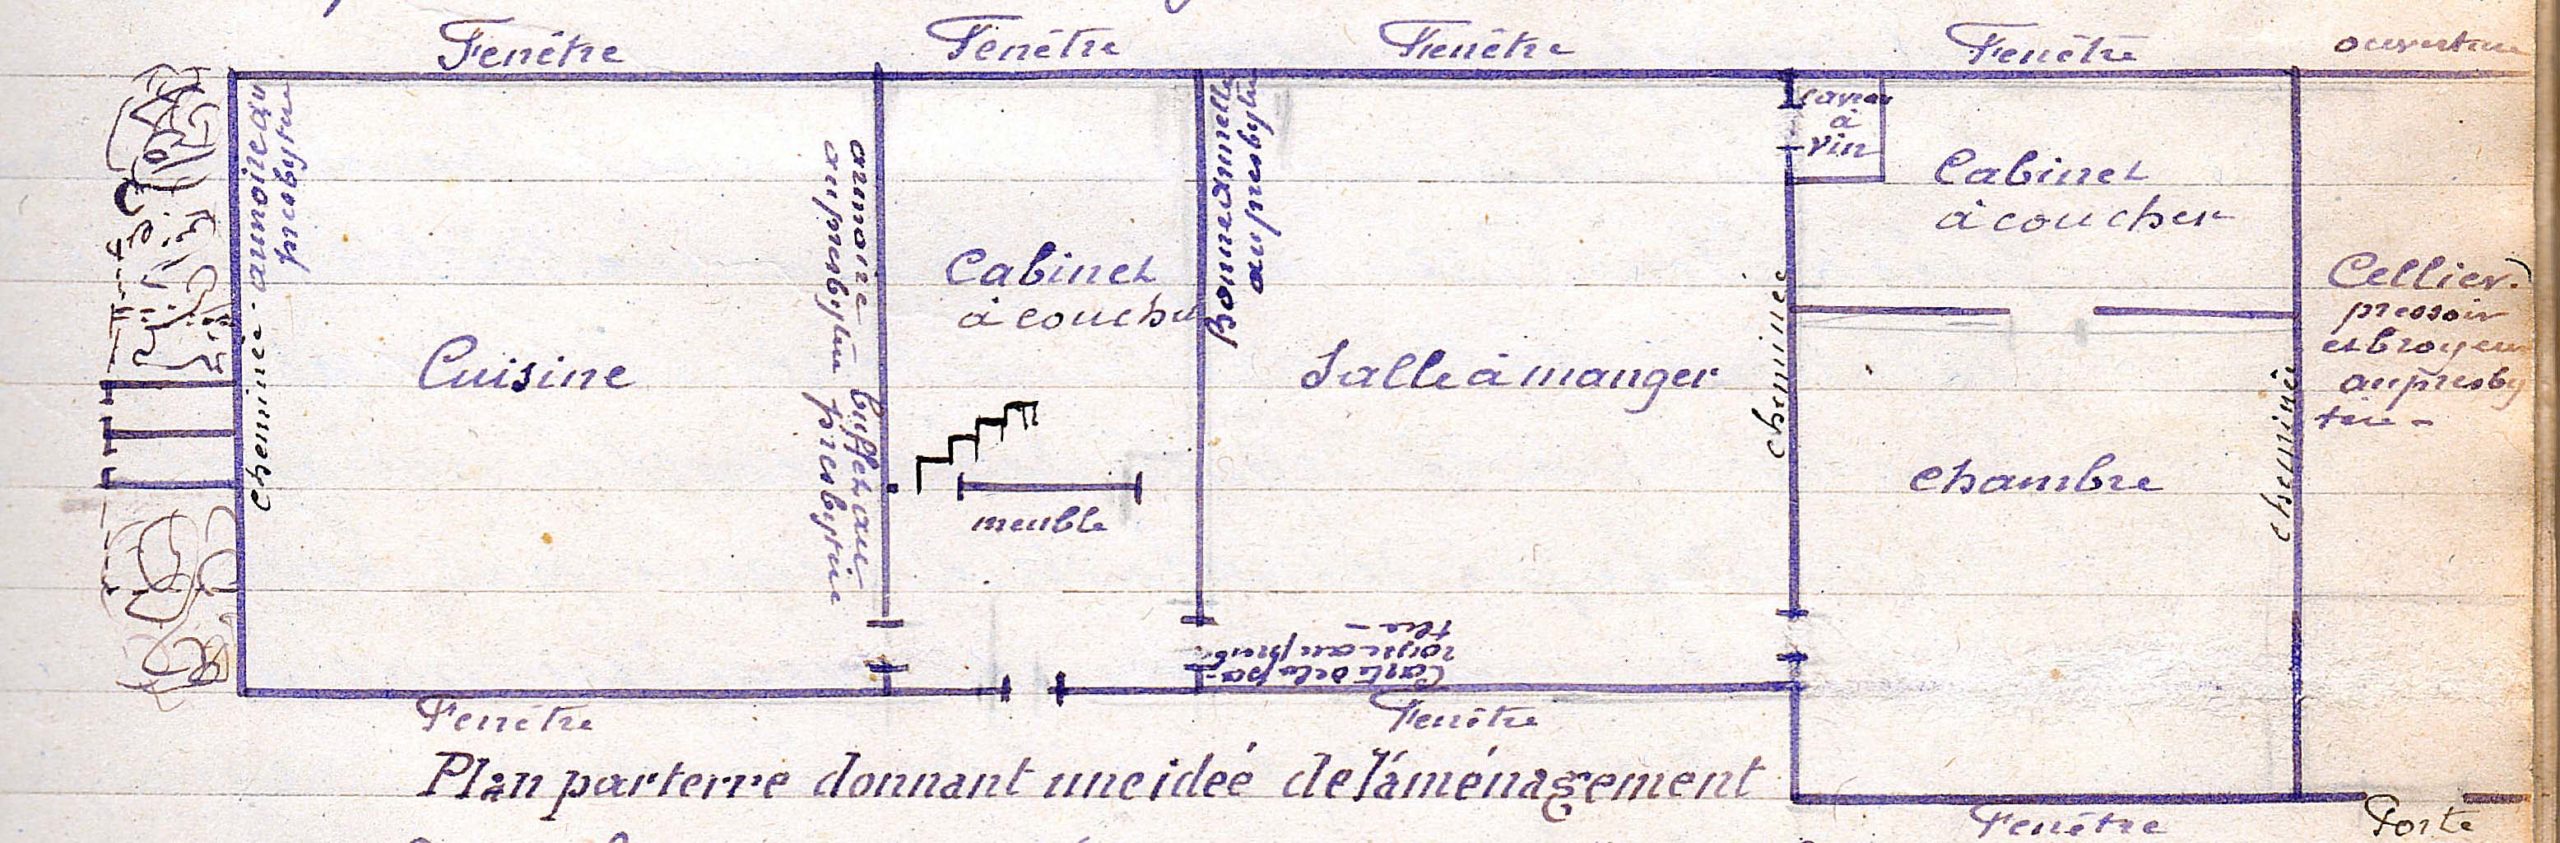 Fenêtre
Fenêtre
Fenêtre
Fenêtre
ouverture
armoire du
presbytère
cheminée
Cuisine
armoire
au presbytère
buffet au
presbytère
Cabinet
à coucher
meuble
Bonne
au presbytère
Salle à manger
cheminée
Carte de la pa-
roisse au presb
tère -
caveau
à
vin
Cabinet
à coucher
chambre
cheminée
Cellier.
pressoir
et broyeur
au presby
tère -
Fenêtre
Fenêtre
Fenêtre
Porte
Plan par terre donnant une idée de l'aménagement